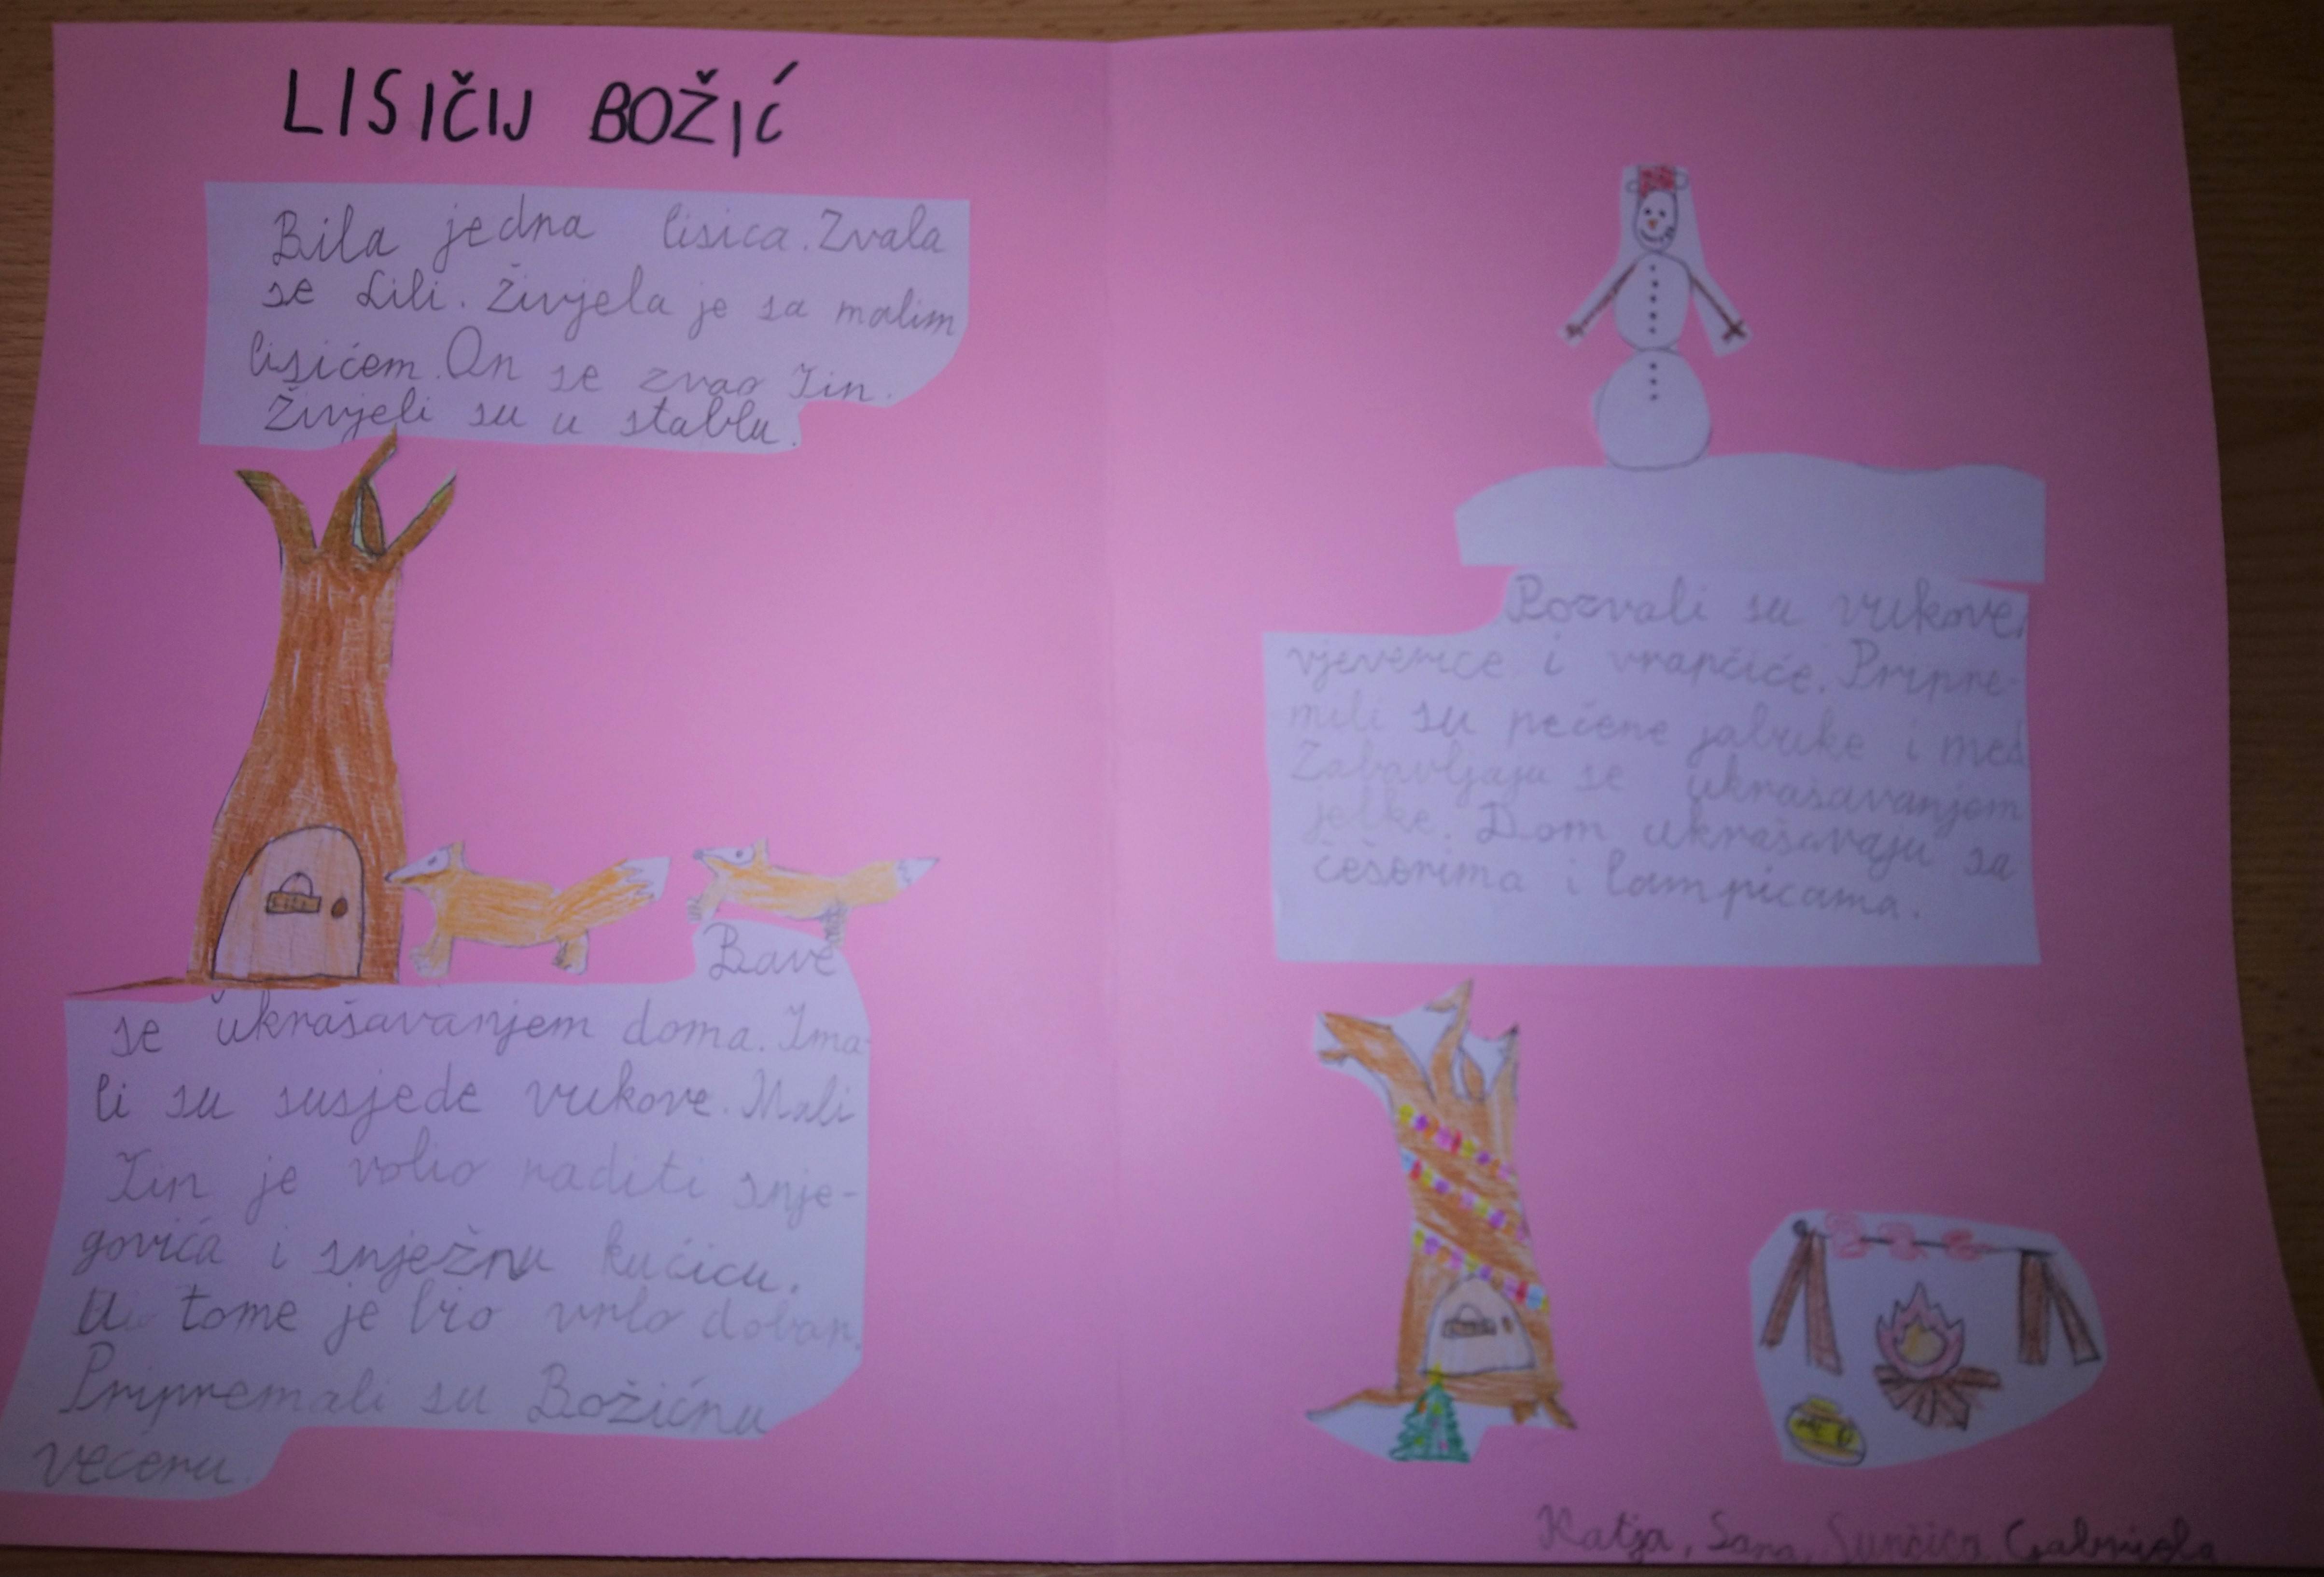 LISIČIJ BOŽIĆ
Bila jedna lisica. Zvala
se Lili. Živjela je sa malim
lisićem. On se zvao Tin.
Živjeli su u stablu.
Bave
se ukrašavanjem doma. Ima-
li su susjede vukove. Mali
Tin je volio raditi snje-
govića i snježnu kućicu.
U tome je bio vrlo dobar.
Pripremali su Božićnu
večeru.
Pozvali su vukove,
vjeverice i vrapčiće. Pripre-
mili su pečene jabuke i med
Zabavljaju se ukrašavanjem
jelke. Dom ukrašavaju sa
češerima i lampicama.
Katja, Sana, Sunčica, Gabrijela